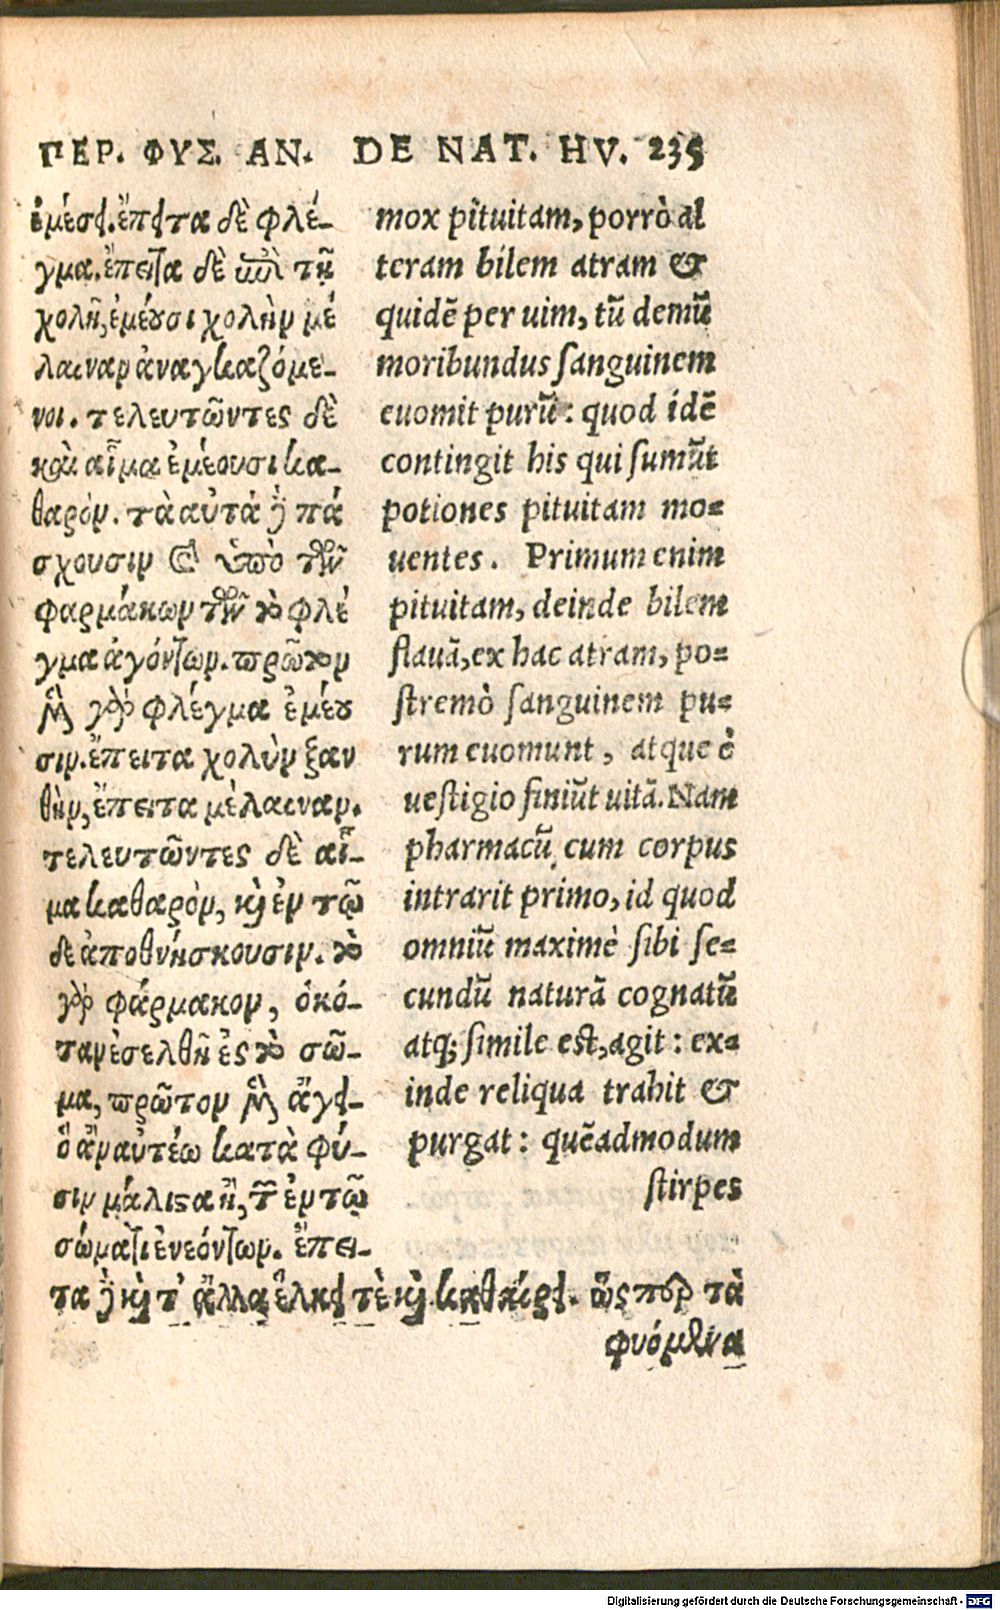 ΠΕΡ. ΦΥΣ. ΑΝ. DE NAT. HV. 235
ἐμέσει. ἔπειτα δὲ φλέ-
γμα. ἔπειτα δὲ ἐπὶ τῇ
χολῇ, ἐμέουσι χολὴν μέ
λαιναν ἀναγκαζόμε-
νοι. τελευτῶντες δὲ
καὶ αἷμα ἐμέουσι κα-
θαρόν. τὰ αὐτὰ δὲ πά
σχουσιν καὶ ὑπὸ τῶν
φαρμάκων τῶν τὸ φλέ
γμα ἀγόντων. πρῶτον
μὲν γὰρ φλέγμα ἐμέου
σιν. ἔπειτα χολὴν ξαν
θὴν, ἔπειτα μέλαιναν.
τελευτῶντες δὲ αἷ-
μα καθαρὸν, καὶ ἐν τῷ
δε ἀποθνήσκουσιν. τὸ
γὰρ φάρμακον, ὁκό-
ταν ἐσέλθῃ ἐς τὸ σῶ-
μα, πρῶτον μὲν ἄγει-
ὃ ἂν αὐτέῳ κατὰ φύ-
σιν μάλιστα ᾖ, τῶν ἐν τῷ
σώματι ἐνεόντων. ἔπει-
τα δὲ καὶ τ' ἄλλα ἕλκει τὲ καὶ καθαίρει. ὥσπερ τὰ
φυόμενα
mox pituitam, porrò al
teram bilem atram &
quidē per uim, tū demū
moribundus sanguinem
euomit purū: quod idē
contingit his qui sumūt
potiones pituitam mo-
uentes. Primum enim
pituitam, deinde bilem
flauā, ex hac atram, po-
stremò sanguinem pu-
rum euomunt, atque è
uestigio finiūt uitā. Nam
pharmacū cum corpus
intrarit primo, id quod
omniū maximè sibi se-
cundū naturā cognatū
atq; simile est, agit: ex-
inde reliqua trahit &
purgat: quēadmodum
stirpes
Digitalisierung gefördert durch die Deutsche Forschungsgemeinschaft - DFG